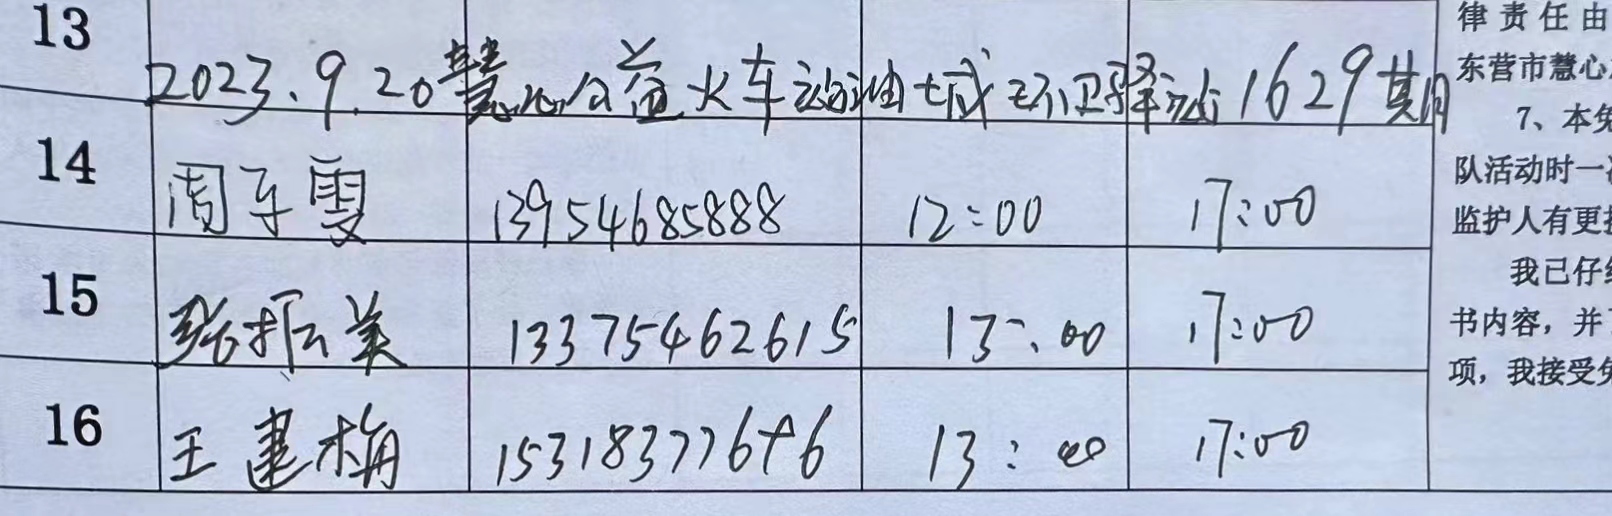 13
2023.9.20慧心公益火车站油城环卫驿站1629期
14 周子雯 13954685888 12:00 17:00
15 张振美 13375462615 13:00 17:00
16 王建梅 153183776 13:00 17:00
律责任由
东营市慧心
7、本免
队活动时一
监护人有更
我已仔细
书内容，并
项，我接受免